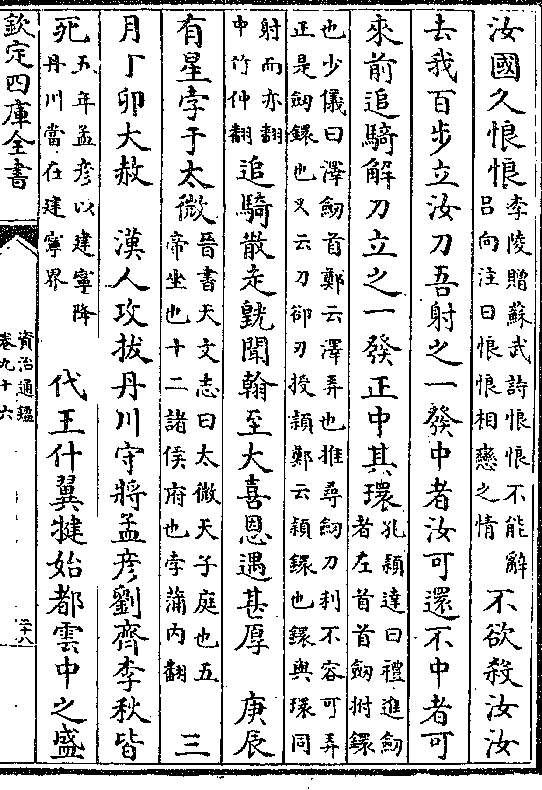 汝國久悢悢李陵贈蘇武詩悢悢不能辭吕向注曰悢悢相戀之情不欲殺汝汝
去我百步立汝刀吾射之一發中者汝可還不中者可
來前追騎解刀立之一發正中其環孔穎達曰禮進劒者左首首劒拊鐶
也少儀曰澤劒首鄭云澤弄也推尋劒刀利不容可弄正是劒鐶也又云刀卻刃授穎鄭云穎鐶也鐶與環同
射而亦翻中竹仲翻追騎散走皝聞翰至大喜恩遇甚厚　庚辰
有星孛于太微晉書天文志曰太微天子庭也五帝坐也十二諸侯府也孛蒲内翻　三
月丁卯大赦　漢人攻拔丹川守將孟彦劉齊李秋皆
死五年孟彦以建寧降丹川當在建寧界　代王什翼犍始都雲中之盛
欽定四庫全書
資治通鑑
卷九十六
二十八